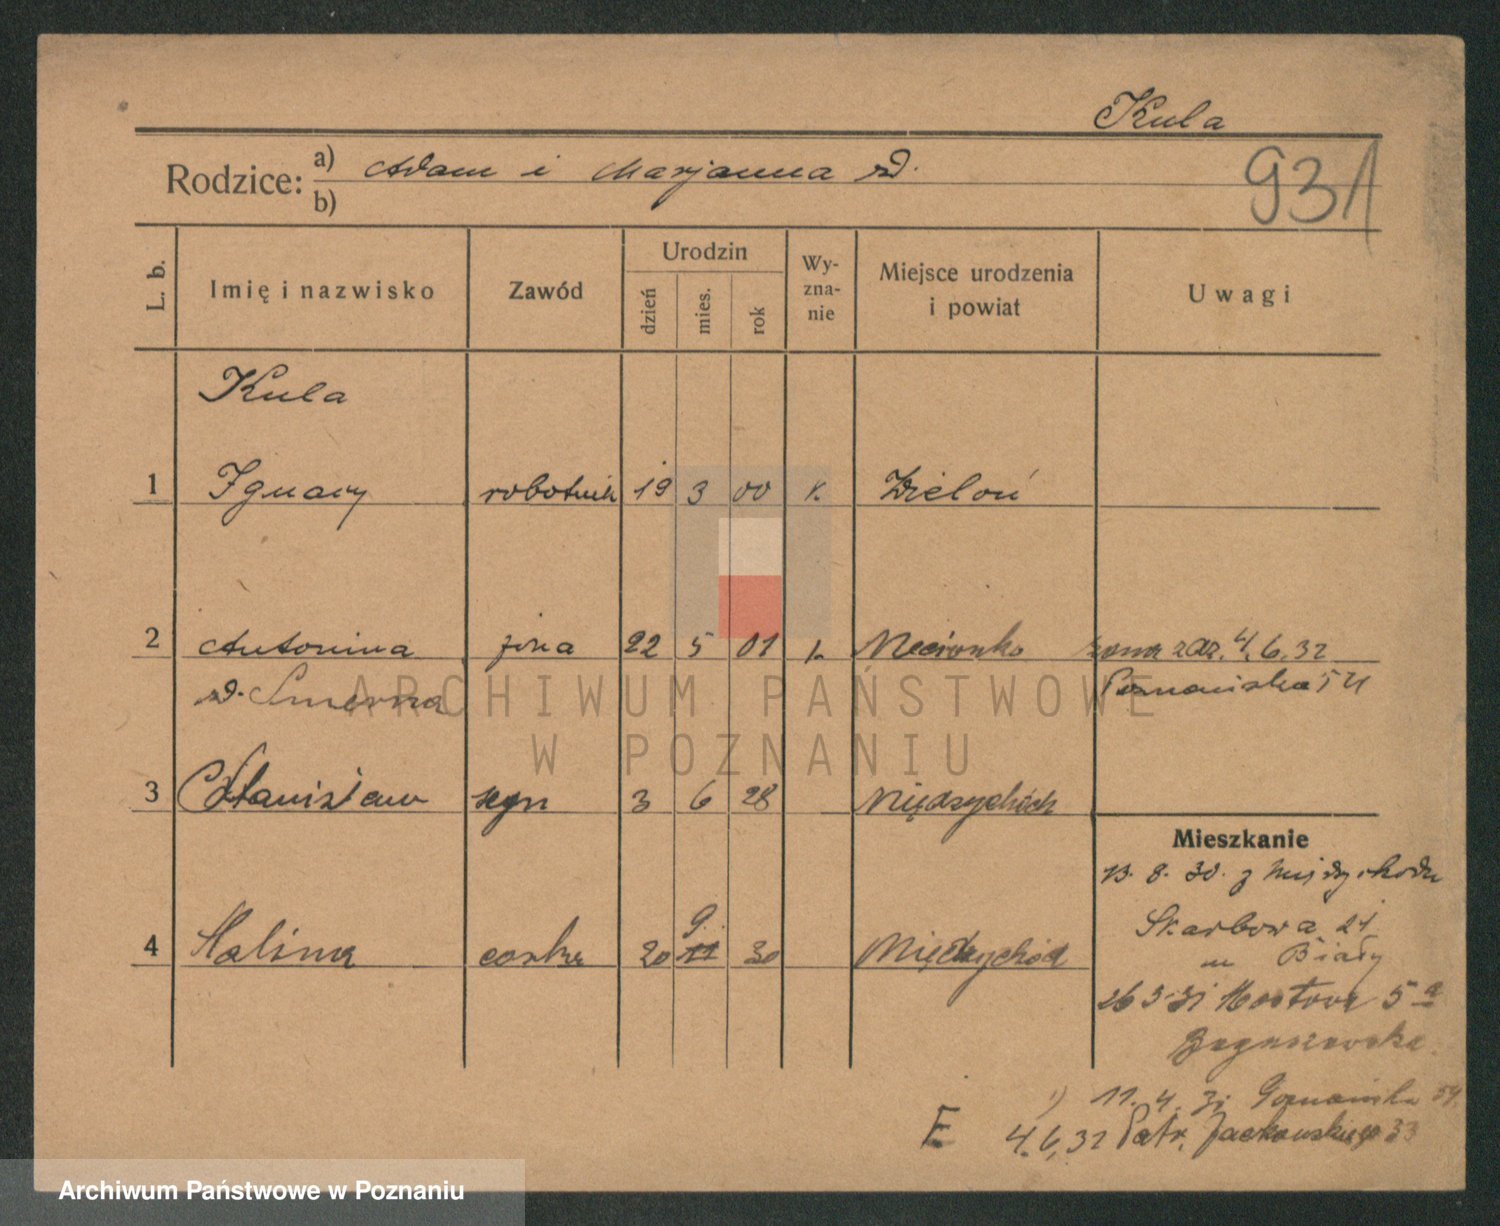 Kula
931
Rodzice: a) Adam i Marjanna zd.
b)
L. b.
Imię i nazwisko
Zawód
Urodzin
dzień
mies.
rok
Wy-
zna-
nie
Miejsce urodzenia
i powiat
Uwagi
Kula
1 Ignacy robotnik 19 3 00 k. Wieloń
2 Antonina żona 22 5 01 k. żona zaz. 4.6.32
zd. Smerna Poznańska 54
3 Stanisław syn 3 6 28 Międzychód
Mieszkanie
13. 8. 30. z Międzychodu
Skarbowa 21
u Biały
4 Halina córka 20 9. 11 30 Międzychód
26 3 31 Mostowa 5 a
1) 11. 4. 31 Poznańska 54.
E 4.6.32 Patr. Jackowskiego 33
ARCHIWUM PAŃSTWOWE
W POZNANIU
Archiwum Państwowe w Poznaniu